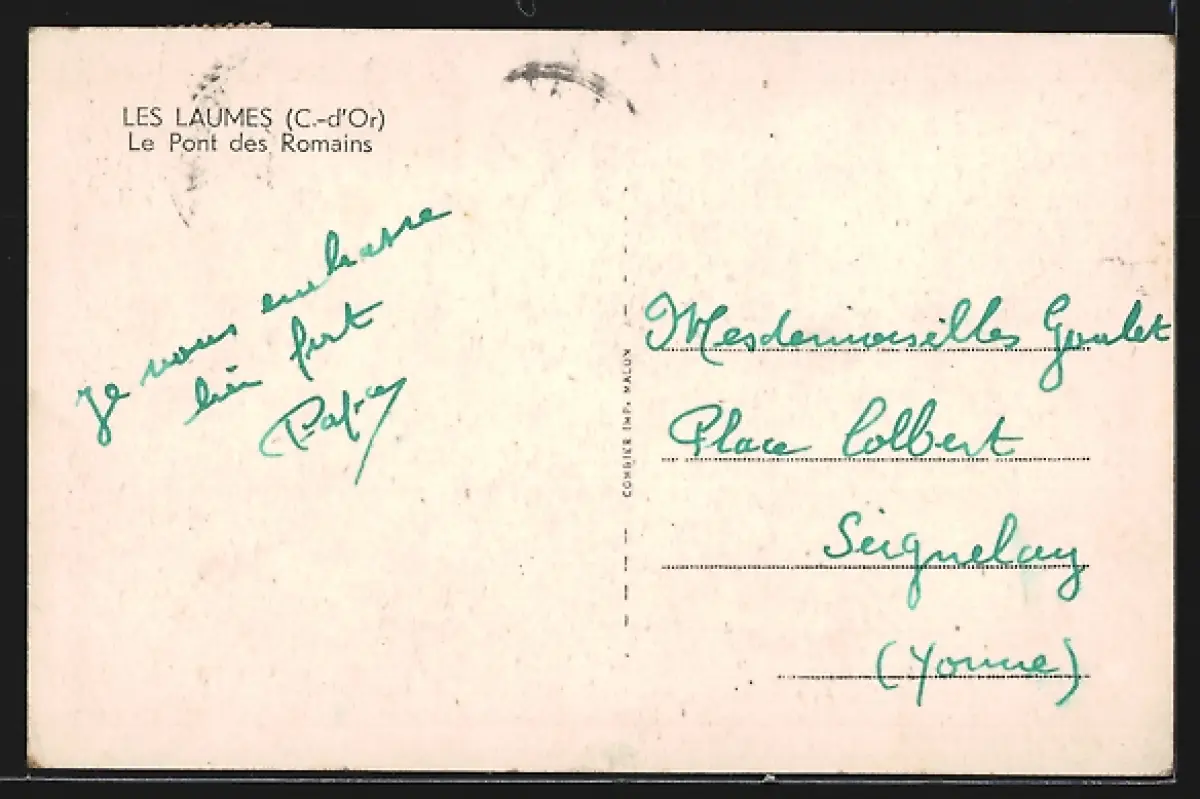 LES LAUMES (C.-d'Or)
Le Pont des Romains
Je vous embrasse
bien fort
Papa
COMBIER IMP. MACON
Mesdemoiselles Goulet
Place Colbert
Seignelay
(Yonne)